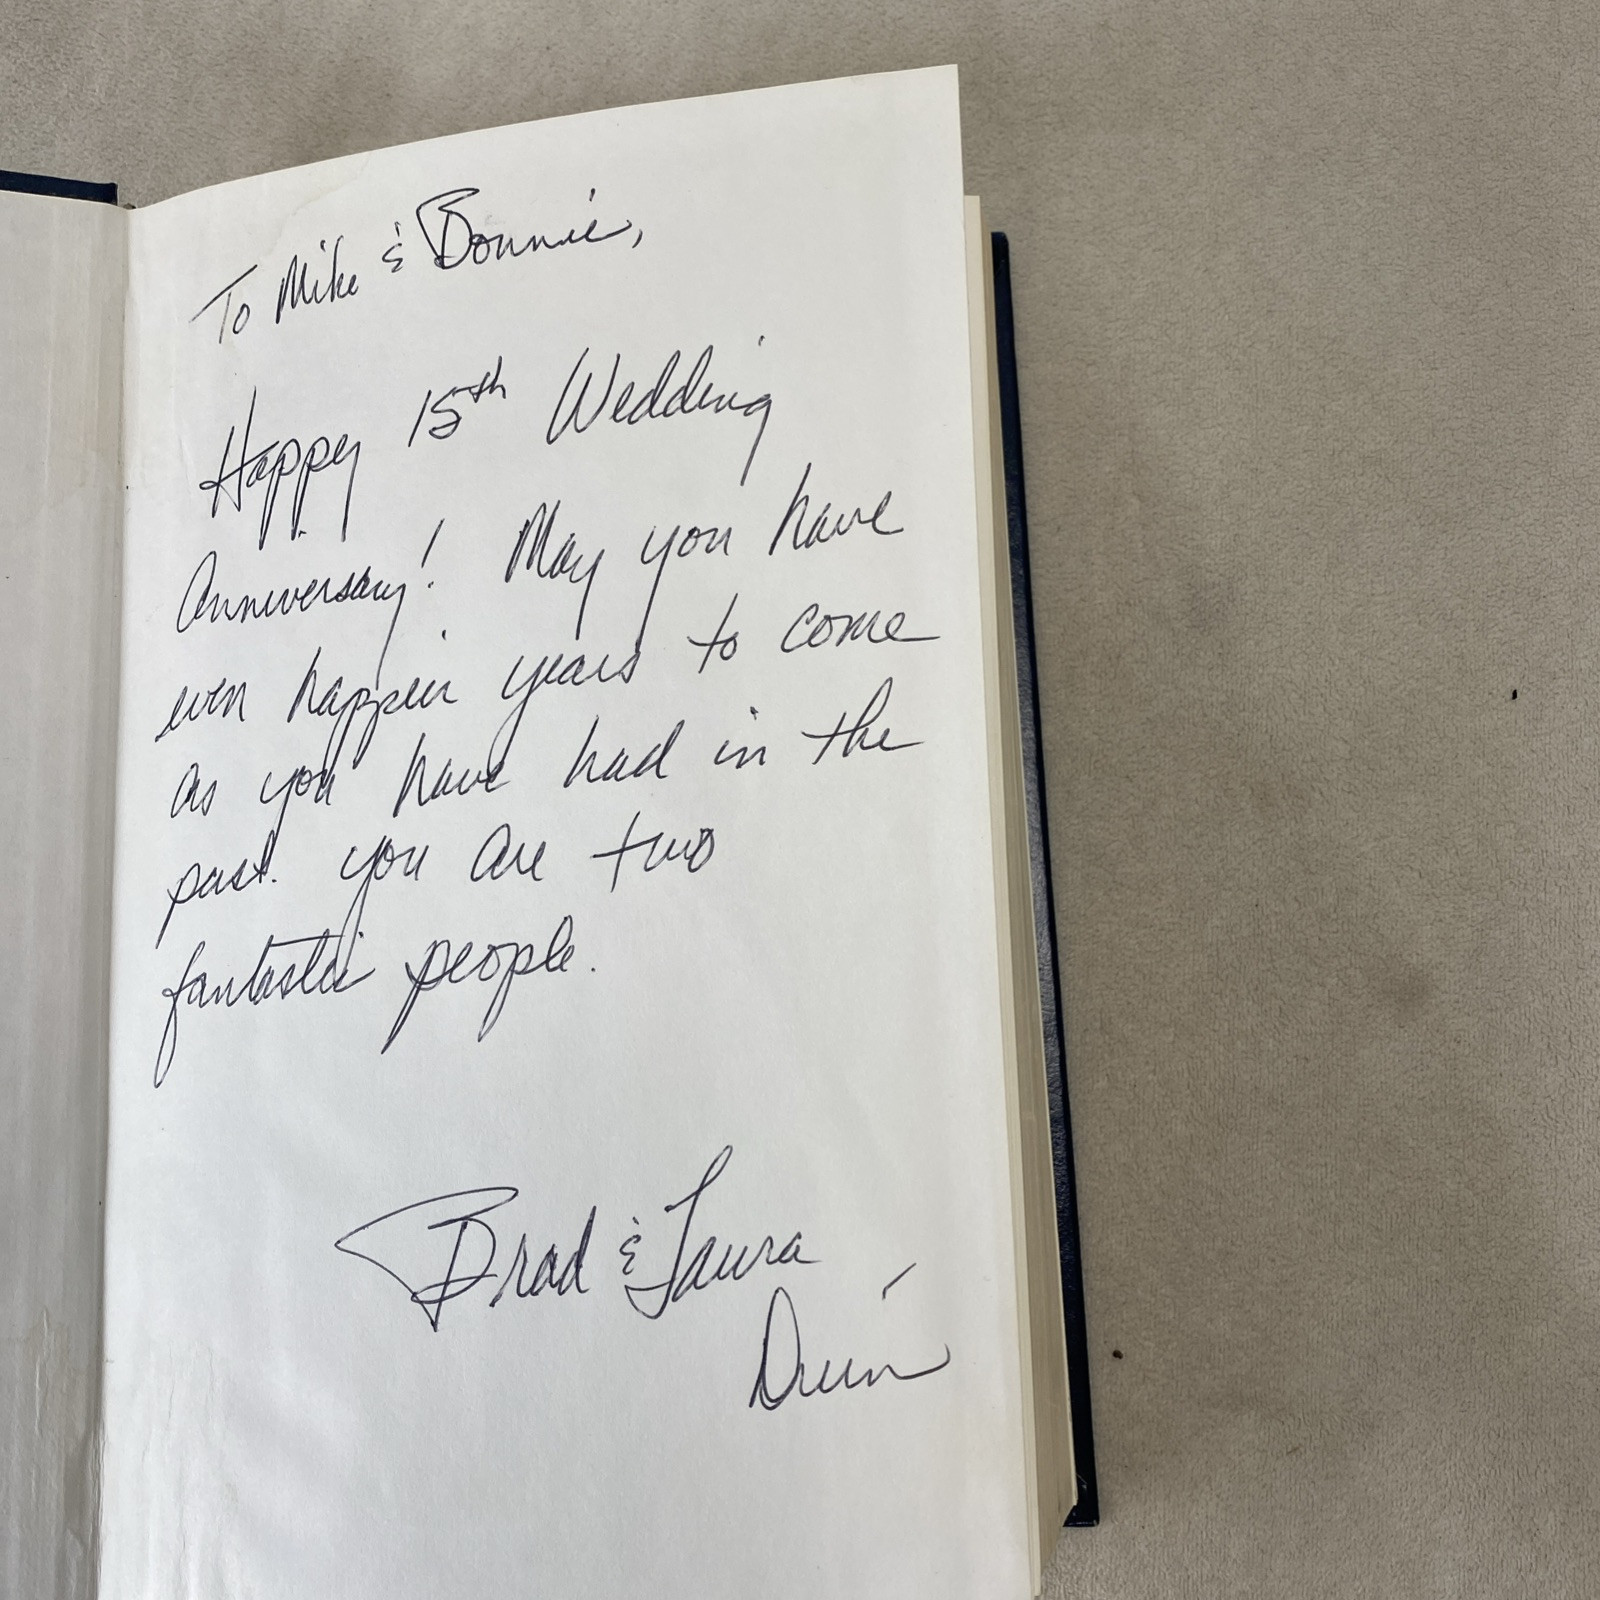 To Mike & Bonnie,
Happy 15th Wedding
Anniversary! May you have
even happier years to come
as you have had in the
past. You are two
fantastic people.
Brad & Laura